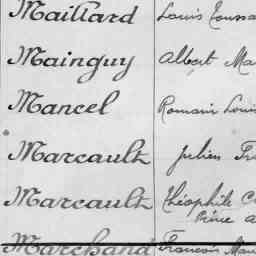 Maillard Louis Toussa
Mainguy Albert Ma
Mancel Romain Louis
Marcault Julien Fr
Marcault Théophile C
Prive a
Marchand François Mar